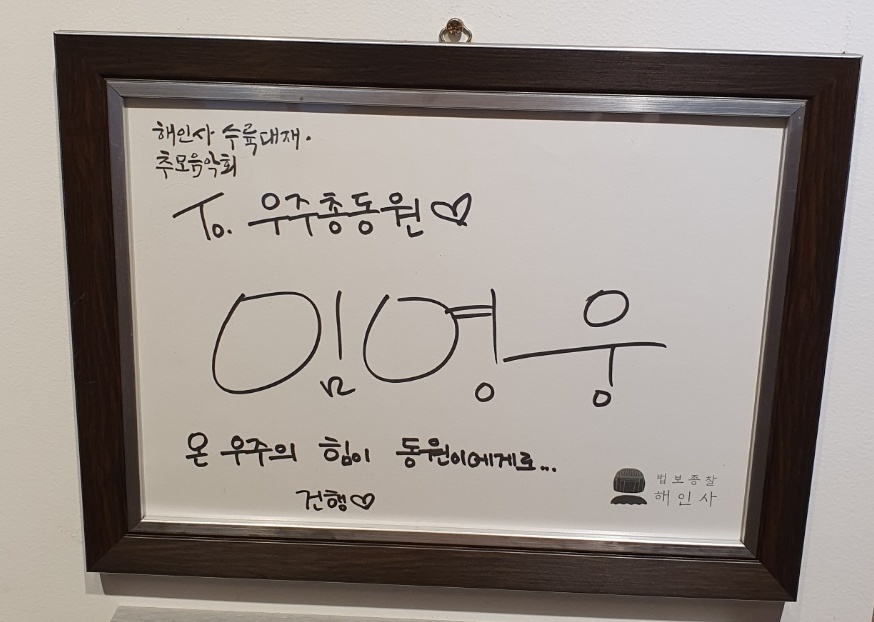 해인사 수륙대재.
추모음악회
To. 우주총동원♡
임영웅
온 우주의 힘이 동원이에게로...
건행♡
법보종찰
해인사